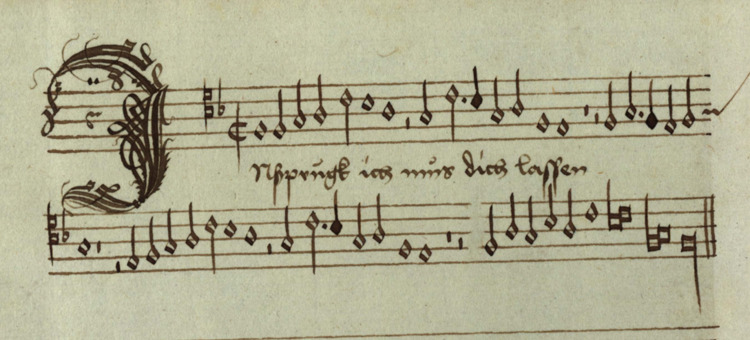 Nſprugk ich mus dich laſſen